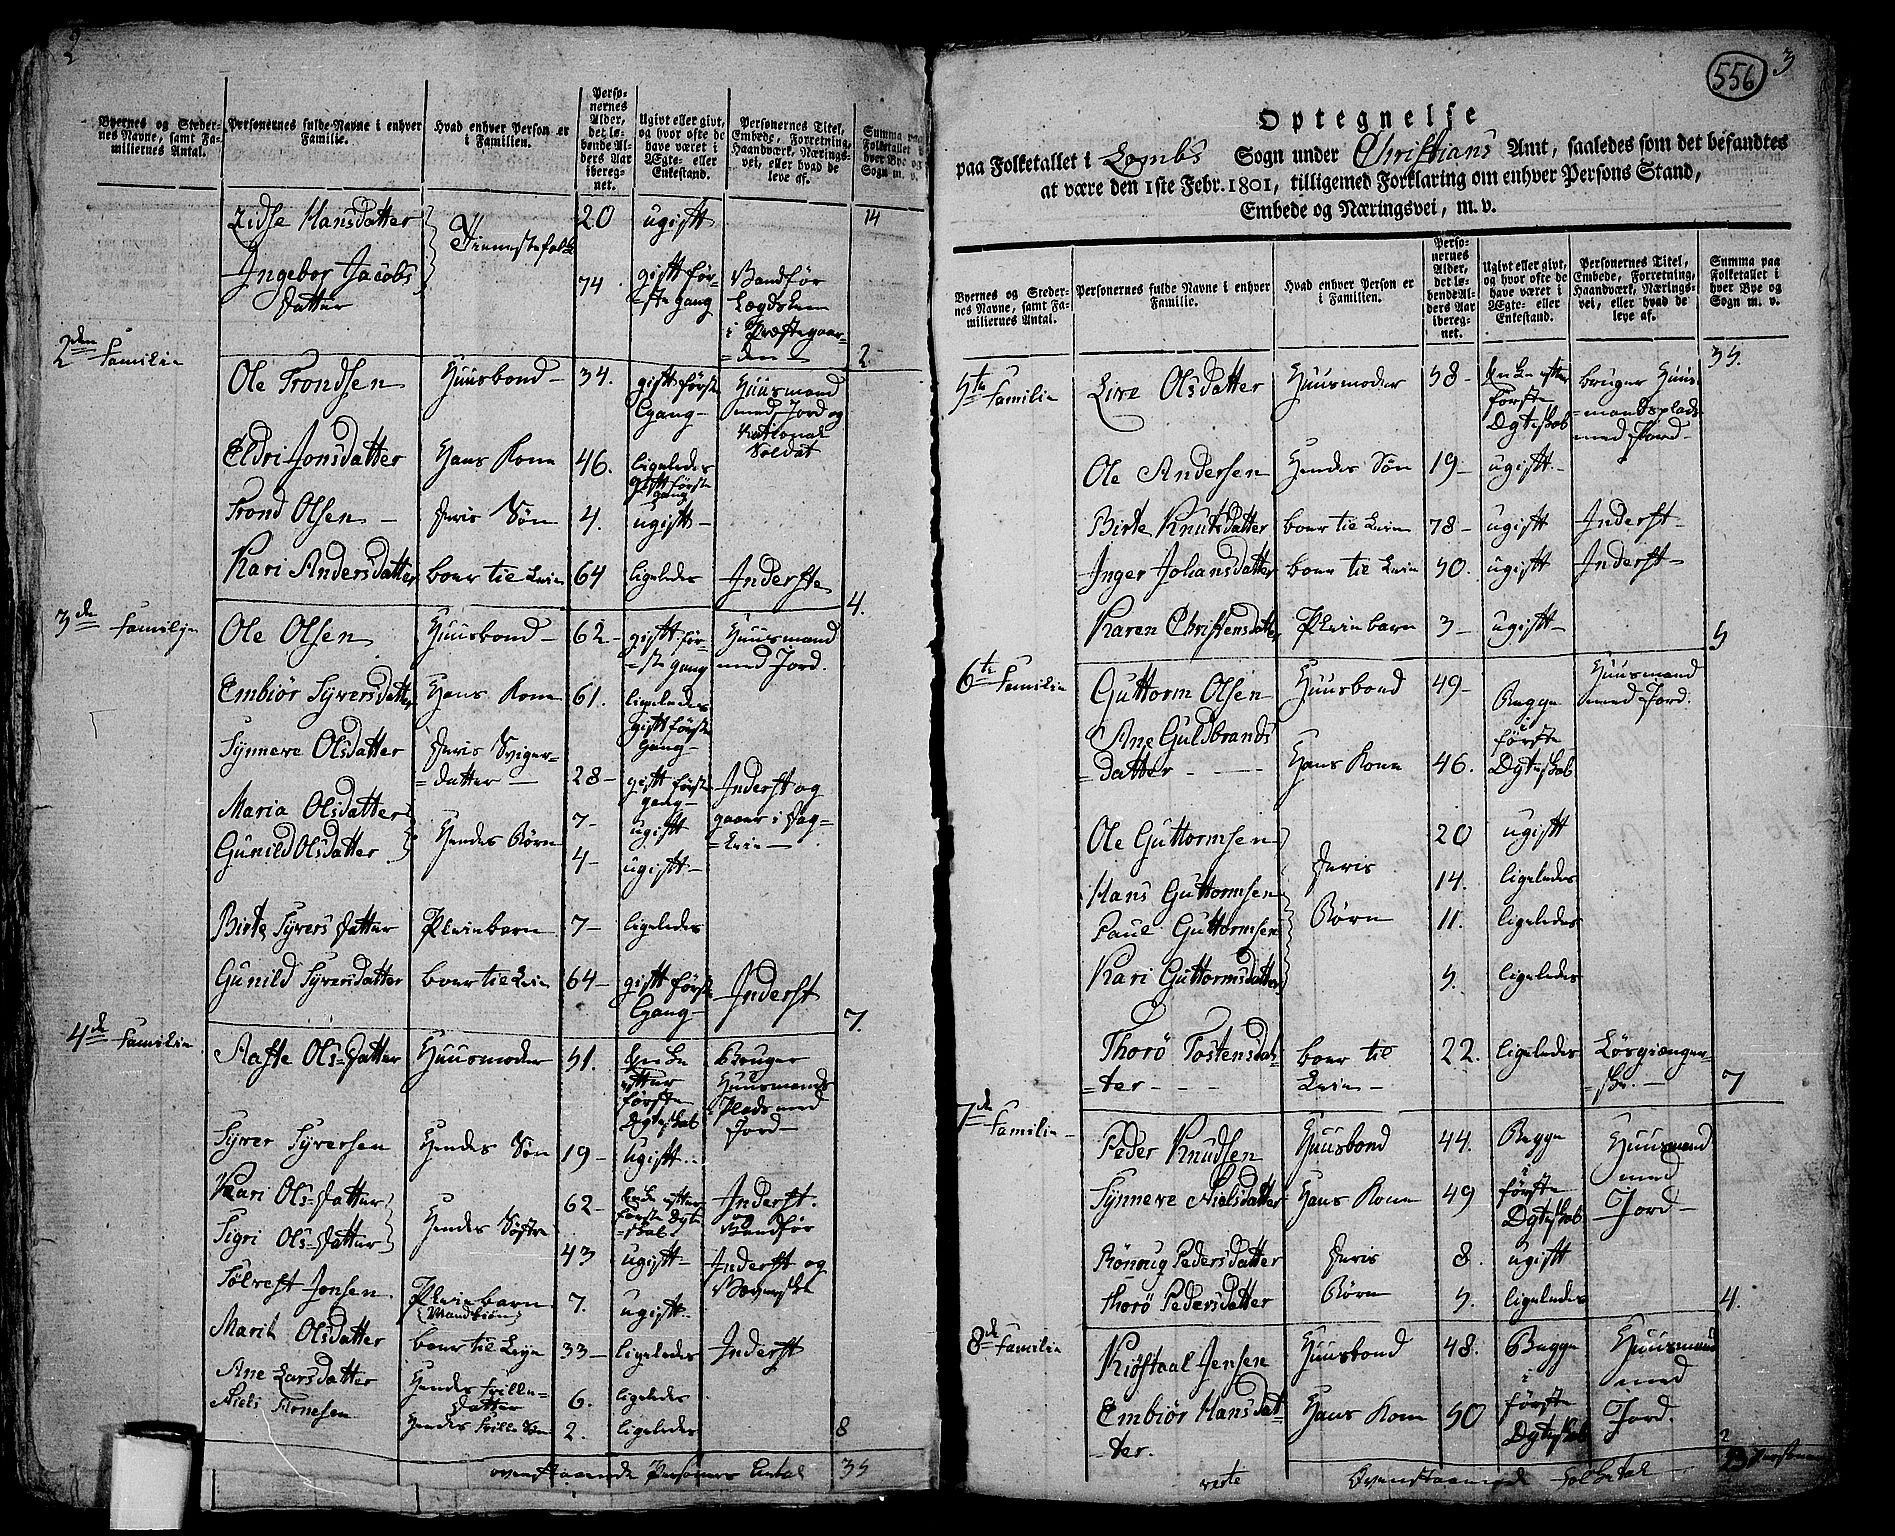 2
Byernes og Steder-
nes Navne, samt Fa-
miliernes Antal.
Personernes fulde Navne i enhver
Familie.
Hvad enhver Person er
i Familien.
Perso-
nernes
Alder,
det lø-
bende Al-
ders Aar
ibereg-
net.
Ugivt eller givt,
og hvor ofte de
have været i
Ægte- eller
Enkestand.
Personernes Titel,
Embede, Forretning,
Haandværk, Nærings-
vei, eller hvad de
leve af.
Summa paa
Folketallet i
hver Bye og
Sogn m. v.
Zidse Hansdatter 20 ugift 14
Tienestefolk
Ingebor Jacobs
datter 74. gift før-
ste gang
Vandfør
Lægdslem
i Præstegaar-
den
2den Familie 2
Ole Trondsen Huusbond 34. gift første
Gang
Huusmand
med Jord og
National
Soldat
Eldri Jonsdatter Hans Kone 46. ligeledes
gift første
gang
Trond Olsen Deris Søn 4. ugift
Kari Andersdatter boer til Leie 64 ligeledes Inderste
3de Familie 4.
Ole Olsen Huusbond 62 gift før-
ste gang
Huusmand
med Jord.
Embiør Syversdatter Hans Kone 61. ligeledes
gift første
Gang
Synneve Olsdatter Deris Sviger-
datter 28 gift første
gang
Inderst og
gaaer i Dag-
Leie
Maria Olsdatter 7 ugift
Hendes Børn
Gunild Olsdatter 4 ugift
Birte Syversdatter Pleiebarn 7 ligeledes
Gunild Syversdatter boer til Leie 64 gift første
Gang
Inderst
4de Familie 7.
Aaste Olsdatter Huusmoder 51. Enke
efter
første
Ægteskab
Bruger
Huusmands
Plads med
Jord
Syver Syversen Hendes Søn 19 ugift
Kari Olsdatter 62 Enke efter
første Ægte
skab
Inderst
og
Vandfør
Hendes Søstre
Sigri Olsdatter 43 ugift Inderst og
Væverske
Sølvest Jonsen Pleiebarn 7. ugift
Marit Olsdatter boer til Leje 33 ligeledes Inderst
Ane Larsdatter Hendes
datter 6. ligeledes
Niels Hendes 2. ligeledes 8
ovenstaaende Personers Antal 35
556
3
Optegnelse
paa Folketallet i Lombs Sogn under Christians Amt, saaledes som det befandtes
at være den 1ste Febr. 1801, tilligemed Forklaring om enhver Persons Stand,
Embede og Næringsvei, m. v.
Byernes og Steder-
nes Navne, samt Fa-
miliernes Antal.
Personernes fulde Navne i enhver
Familie.
Hvad enhver Person er
i Familien.
Perso-
nernes
Alder,
det lø-
bende Al-
ders Aar
ibereg-
net.
Ugivt eller givt,
og hvor ofte de
have været i
Ægte- eller
Enkestand.
Personernes Titel,
Embede, Forretning,
Haandværk, Nærings-
vei, eller hvad de
leve af.
Summa paa
Folketallet i
hver Bye og
Sogn m. v.
35.
5te Familie Live Olsdatter Huusmoder 58 Enke efter
første
Ægteskab
bruger Huus-
mandsplads
med Jord
Ole Andersen Hendes Søn 19 ugift
Birte Knutsdatter boer til Leie 78 ugift Inderst
Inger Johansdatter boer til Leie 50. ugift Inderst
Karen Christensdatter Pleiebarn 3 ugift 5
6te Familie Guttorm Olsen Huusbond 49
Huusmand
med Jord.
Ane Guldbrands
datter Hans Kone 46.
Begge
i
første
Ægteskab
Ole Guttormsen 20 ugift
Deris
Hans Guttormsen 14. ligeledes
Paul Guttormsen Børn 11. ligeledes
Kari Guttormsdatter 5. ligeledes
Thorø Tostensdat-
ter boer til
Leie 22. ligeledes Løsgiænger-
ske. 7
7de Familie
Peder Knudsen Huusbond 44. Begge
i
første
Ægteskab
Huusmand
med
Jord
Synneve Nielsdatter Hans Kone 49
Rønnug Pedersdatter Deris 8. ugift
Thorø Pedersdatter Børn 5. ligeledes 4.
8de Familie
Kiøstaal Jensen Huusbond 48. Begge
i
første
Ægteskab
Huusmand
med
Jord.
Embiør Hansdat-
ter. Hans Kone 50
2
Ovenstaaende Folketal